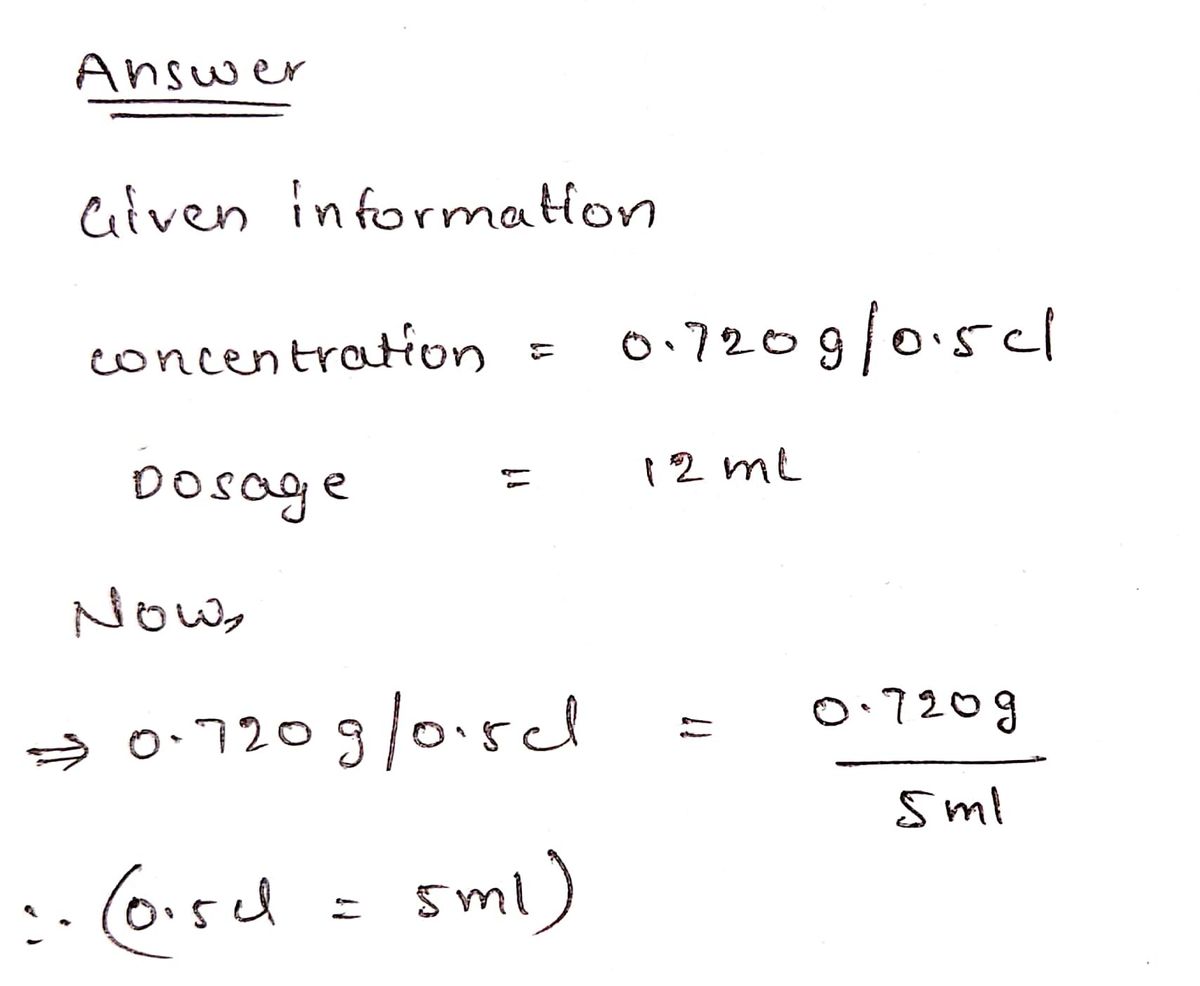 Answer
Given information
concentration = 0.720 g/0.5cl
Dosage = 12 ml
Now,
⇒ 0.720 g/0.5cl = 0.720g
5ml
∴ (0.5cl = 5ml)